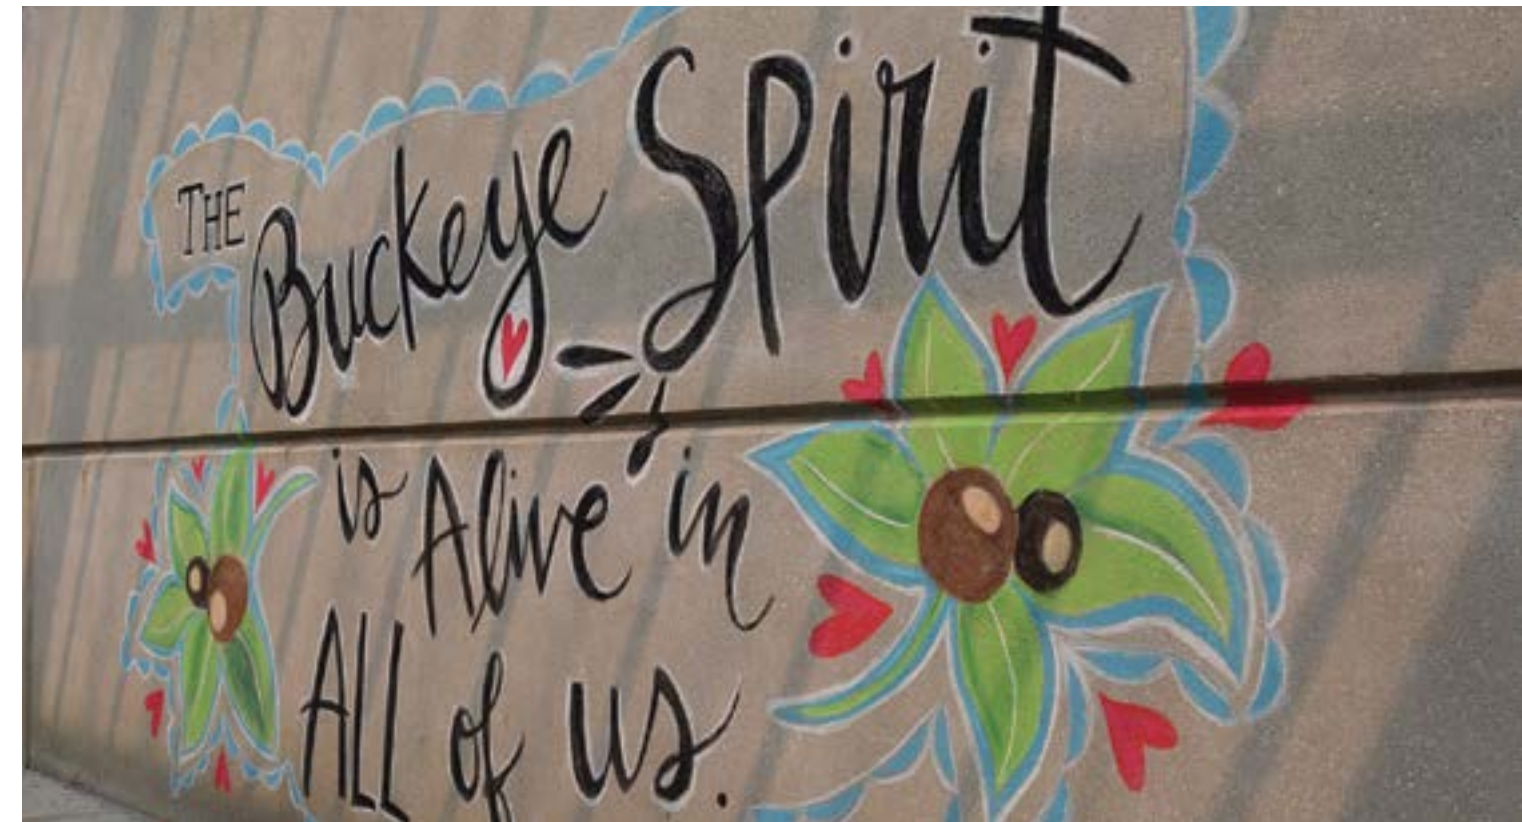 THE Buckeye Spirit
is Alive in
ALL of us.